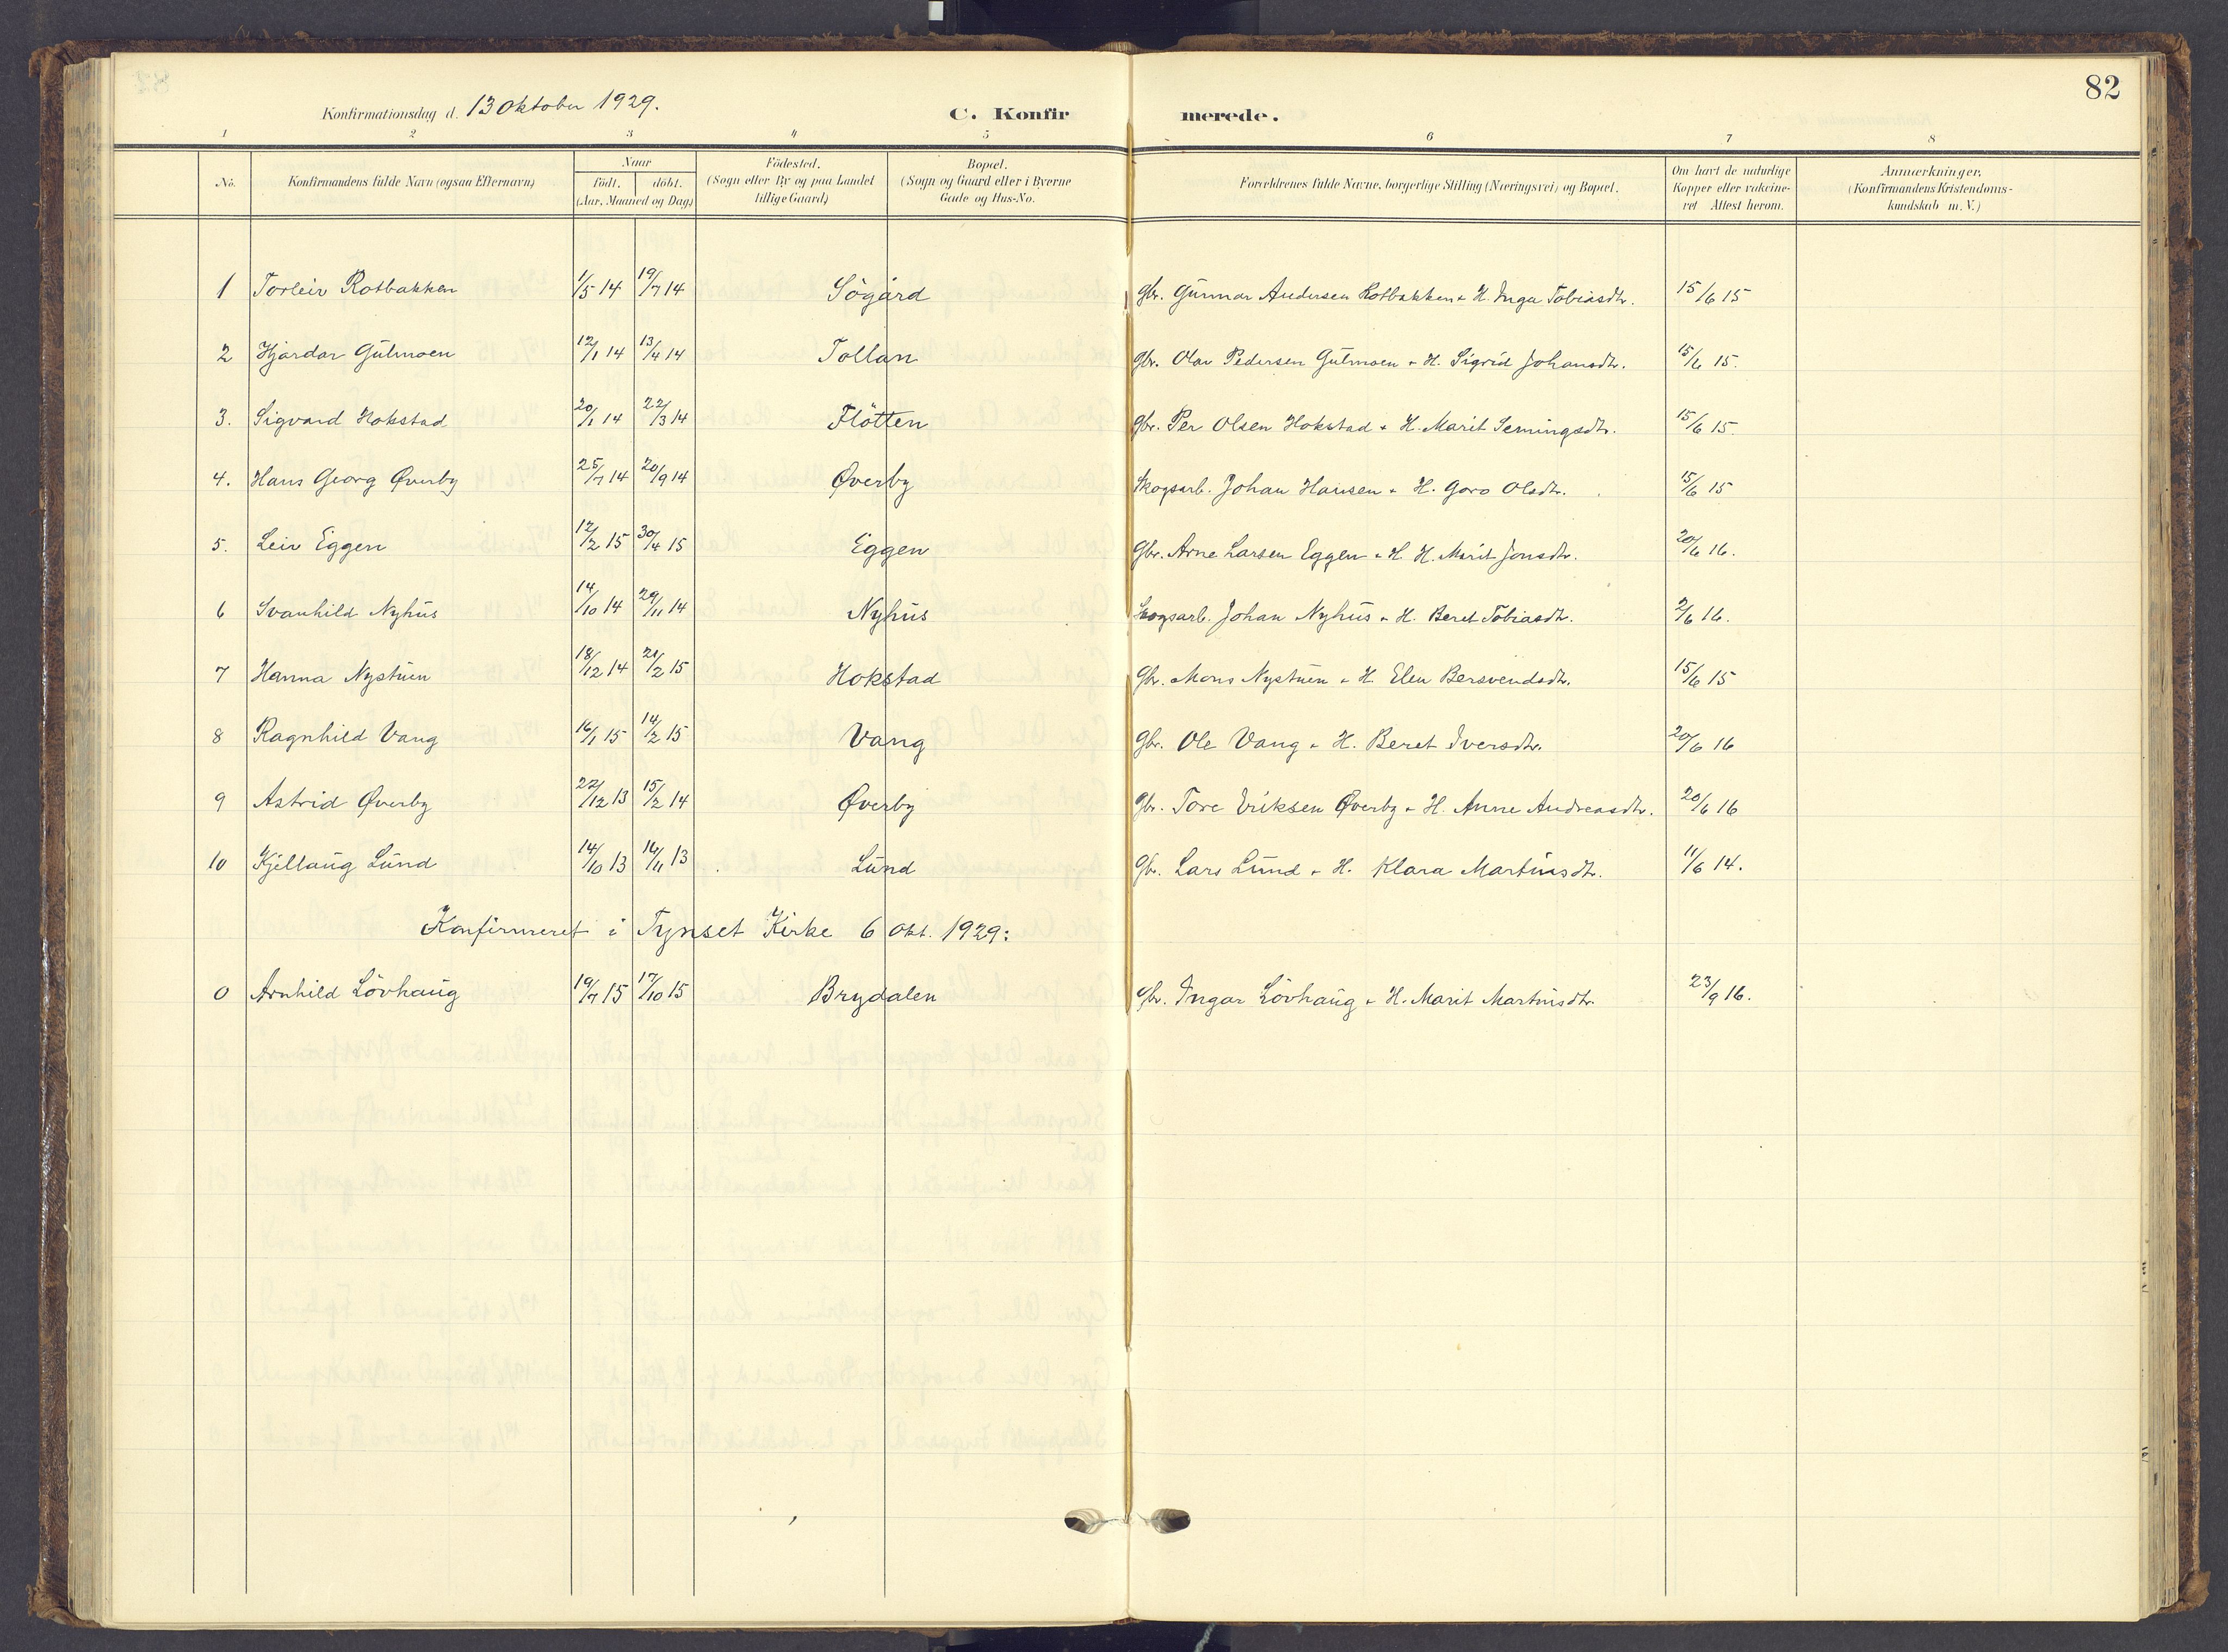 82
Konfirmationsdag d. 13 Oktober 1929. C. Konfirmerede.
1 2 3 4 5 6 7 8
No. Konfirmandens fulde Navn (ogsaa Efternavn) Naar födt. döbt. (Aar, Maaned og Dag) Födested. (Sogn eller By og paa Landet tillige Gaard) Bopæl. (Sogn og Gaard eller i Byerne Gade og Hus-No. Forældrenes fulde Navne, borgerlige Stilling (Næringsvei) og Bopæl. Om havt de naturlige Kopper eller vakcineret Attest herom. Anmærkninger, (Konfirmandens Kristendomskundskab m. V.)
1 Torleiv Rotbakken 1/5 14 19/7 14 Sögård Gbr. Gunnar Andersen Rotbakken + H. Inga Tobiasdtr. 15/6 15
2 Hjardar Gulmoen 12/1 14 13/4 14 Tollan Gbr. Olav Pedersen Gulmoen + H. Sigrid Johansdtr. 15/6 15.
3. Sigvard Hokstad 20/1 14 22/3 14 Flötten Gbr. Per Olsen Hokstad + H. Marit Semingsdtr. 15/6 15.
4. Hans Georg Øverby 25/7 14 20/9 14 Øverby Skogsarb. Johan Hansen + H. Goro Olsdtr. 15/6 15
5. Leiv Eggen 12/2 15 30/4 15 Eggen Gbr. Arne Larsen Eggen + H. H. Marit Jonsdtr. 20/6 16.
6 Svanhild Nyhus 14/10 14 29/11 14 Nyhus Skogsarb. Johan Nyhus + H. Beret Tobiasdtr. 2/6 16.
7 Hanna Nystuen 18/12 14 21/2 15 Hokstad Gbr. Mons Nystuen + H. Elen Bersvendsdtr. 15/6 15
8 Ragnhild Vang 16/1 15 14/2 15 Vang Gbr. Ole Vang + H. Beret Iversdtr. 20/6 16
9 Astrid Øverby 22/12 13 15/2 14 Øverby Gbr. Tore Eriksen Øverby + H. Anne Andreasdtr. 20/6 16
10 Kjellaug Lund 14/10 13 16/11 13 Lund Gbr. Lars Lund + H. Klara Martinsdtr. 11/6 14.
Konfirmeret i Tynset Kirke 6 Okt. 1929:
0 Arnhild Lövhaug 19/7 15 17/10 15 Brydalen Gbr. Ingar Lövhaug + H. Marit Martinsdtr. 23/9 16.